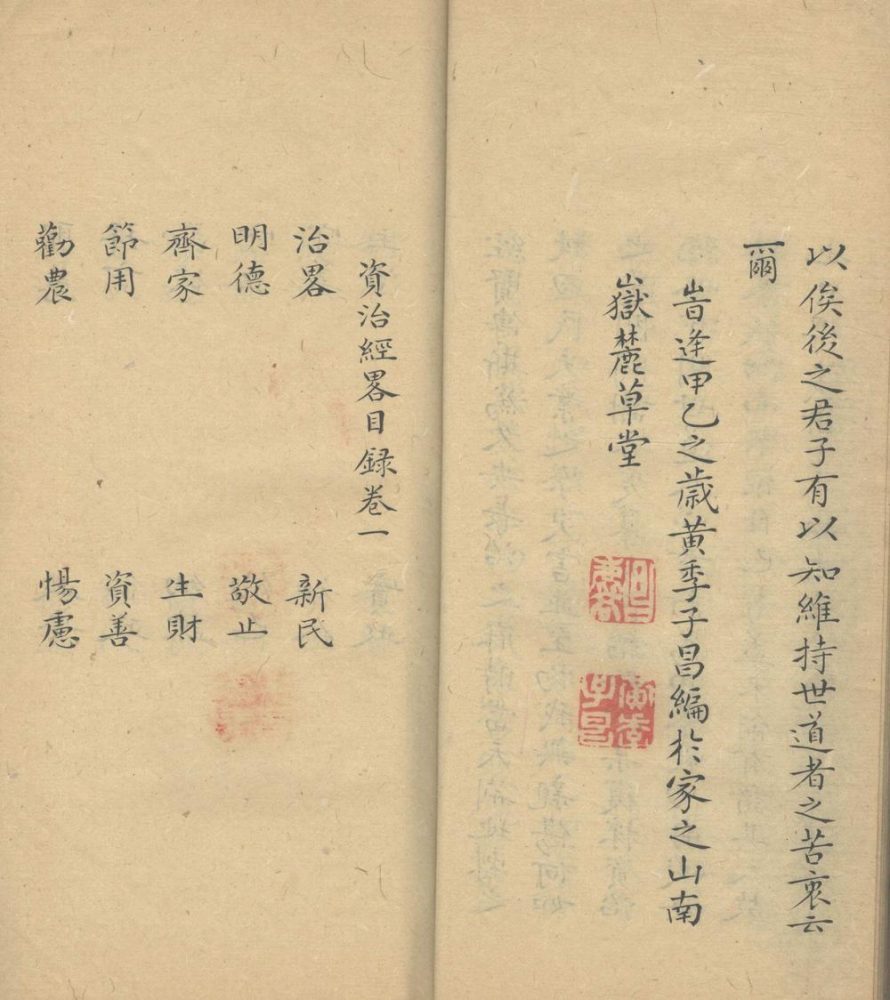 以俟後之君子有以知維持世道者之苦衷云
爾
旹逢甲乙之歲黃季子昌編於家之山南
嶽麓草堂
資治經畧目録卷一
治畧 新民
明德 敬止
齊家 生財
節用 資善
勸農 惕慮